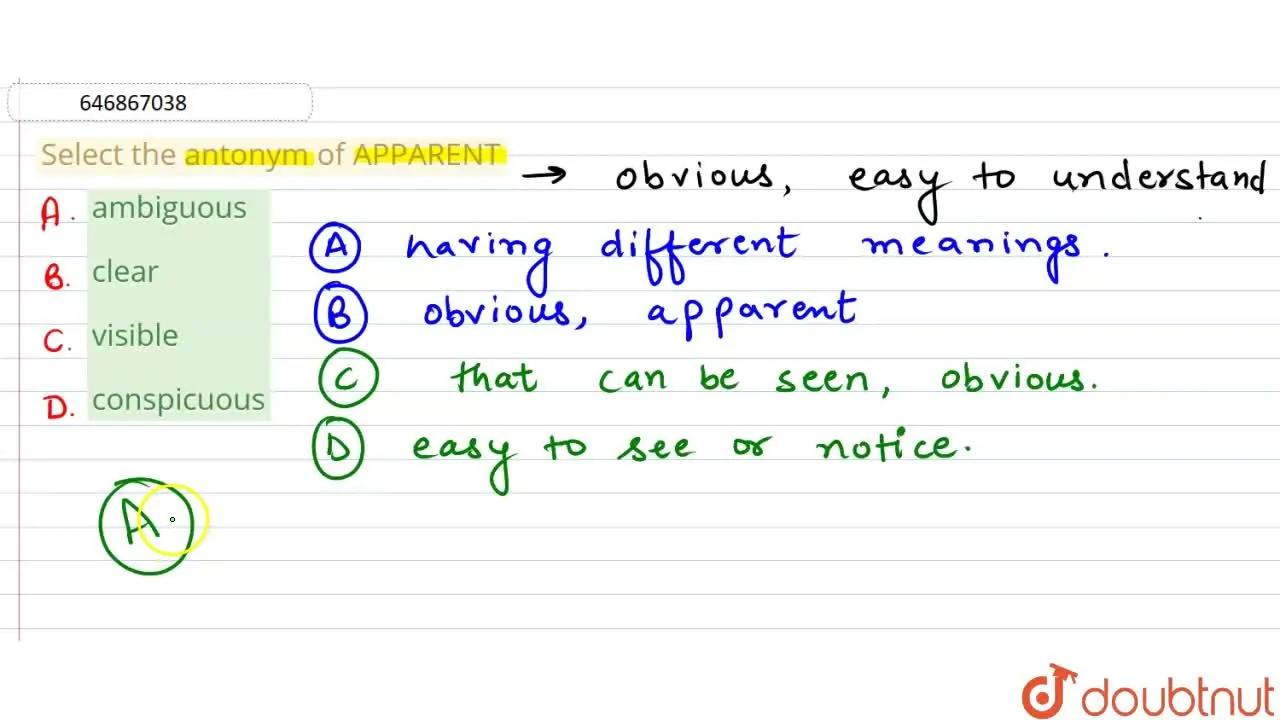 646867038
Select the antonym of APPARENT → obvious, easy to understand
A. ambiguous
B. clear
C. visible
D. conspicuous
A having different meanings.
B obvious, apparent
C that can be seen, obvious.
D easy to see or notice.
A
doubtnut